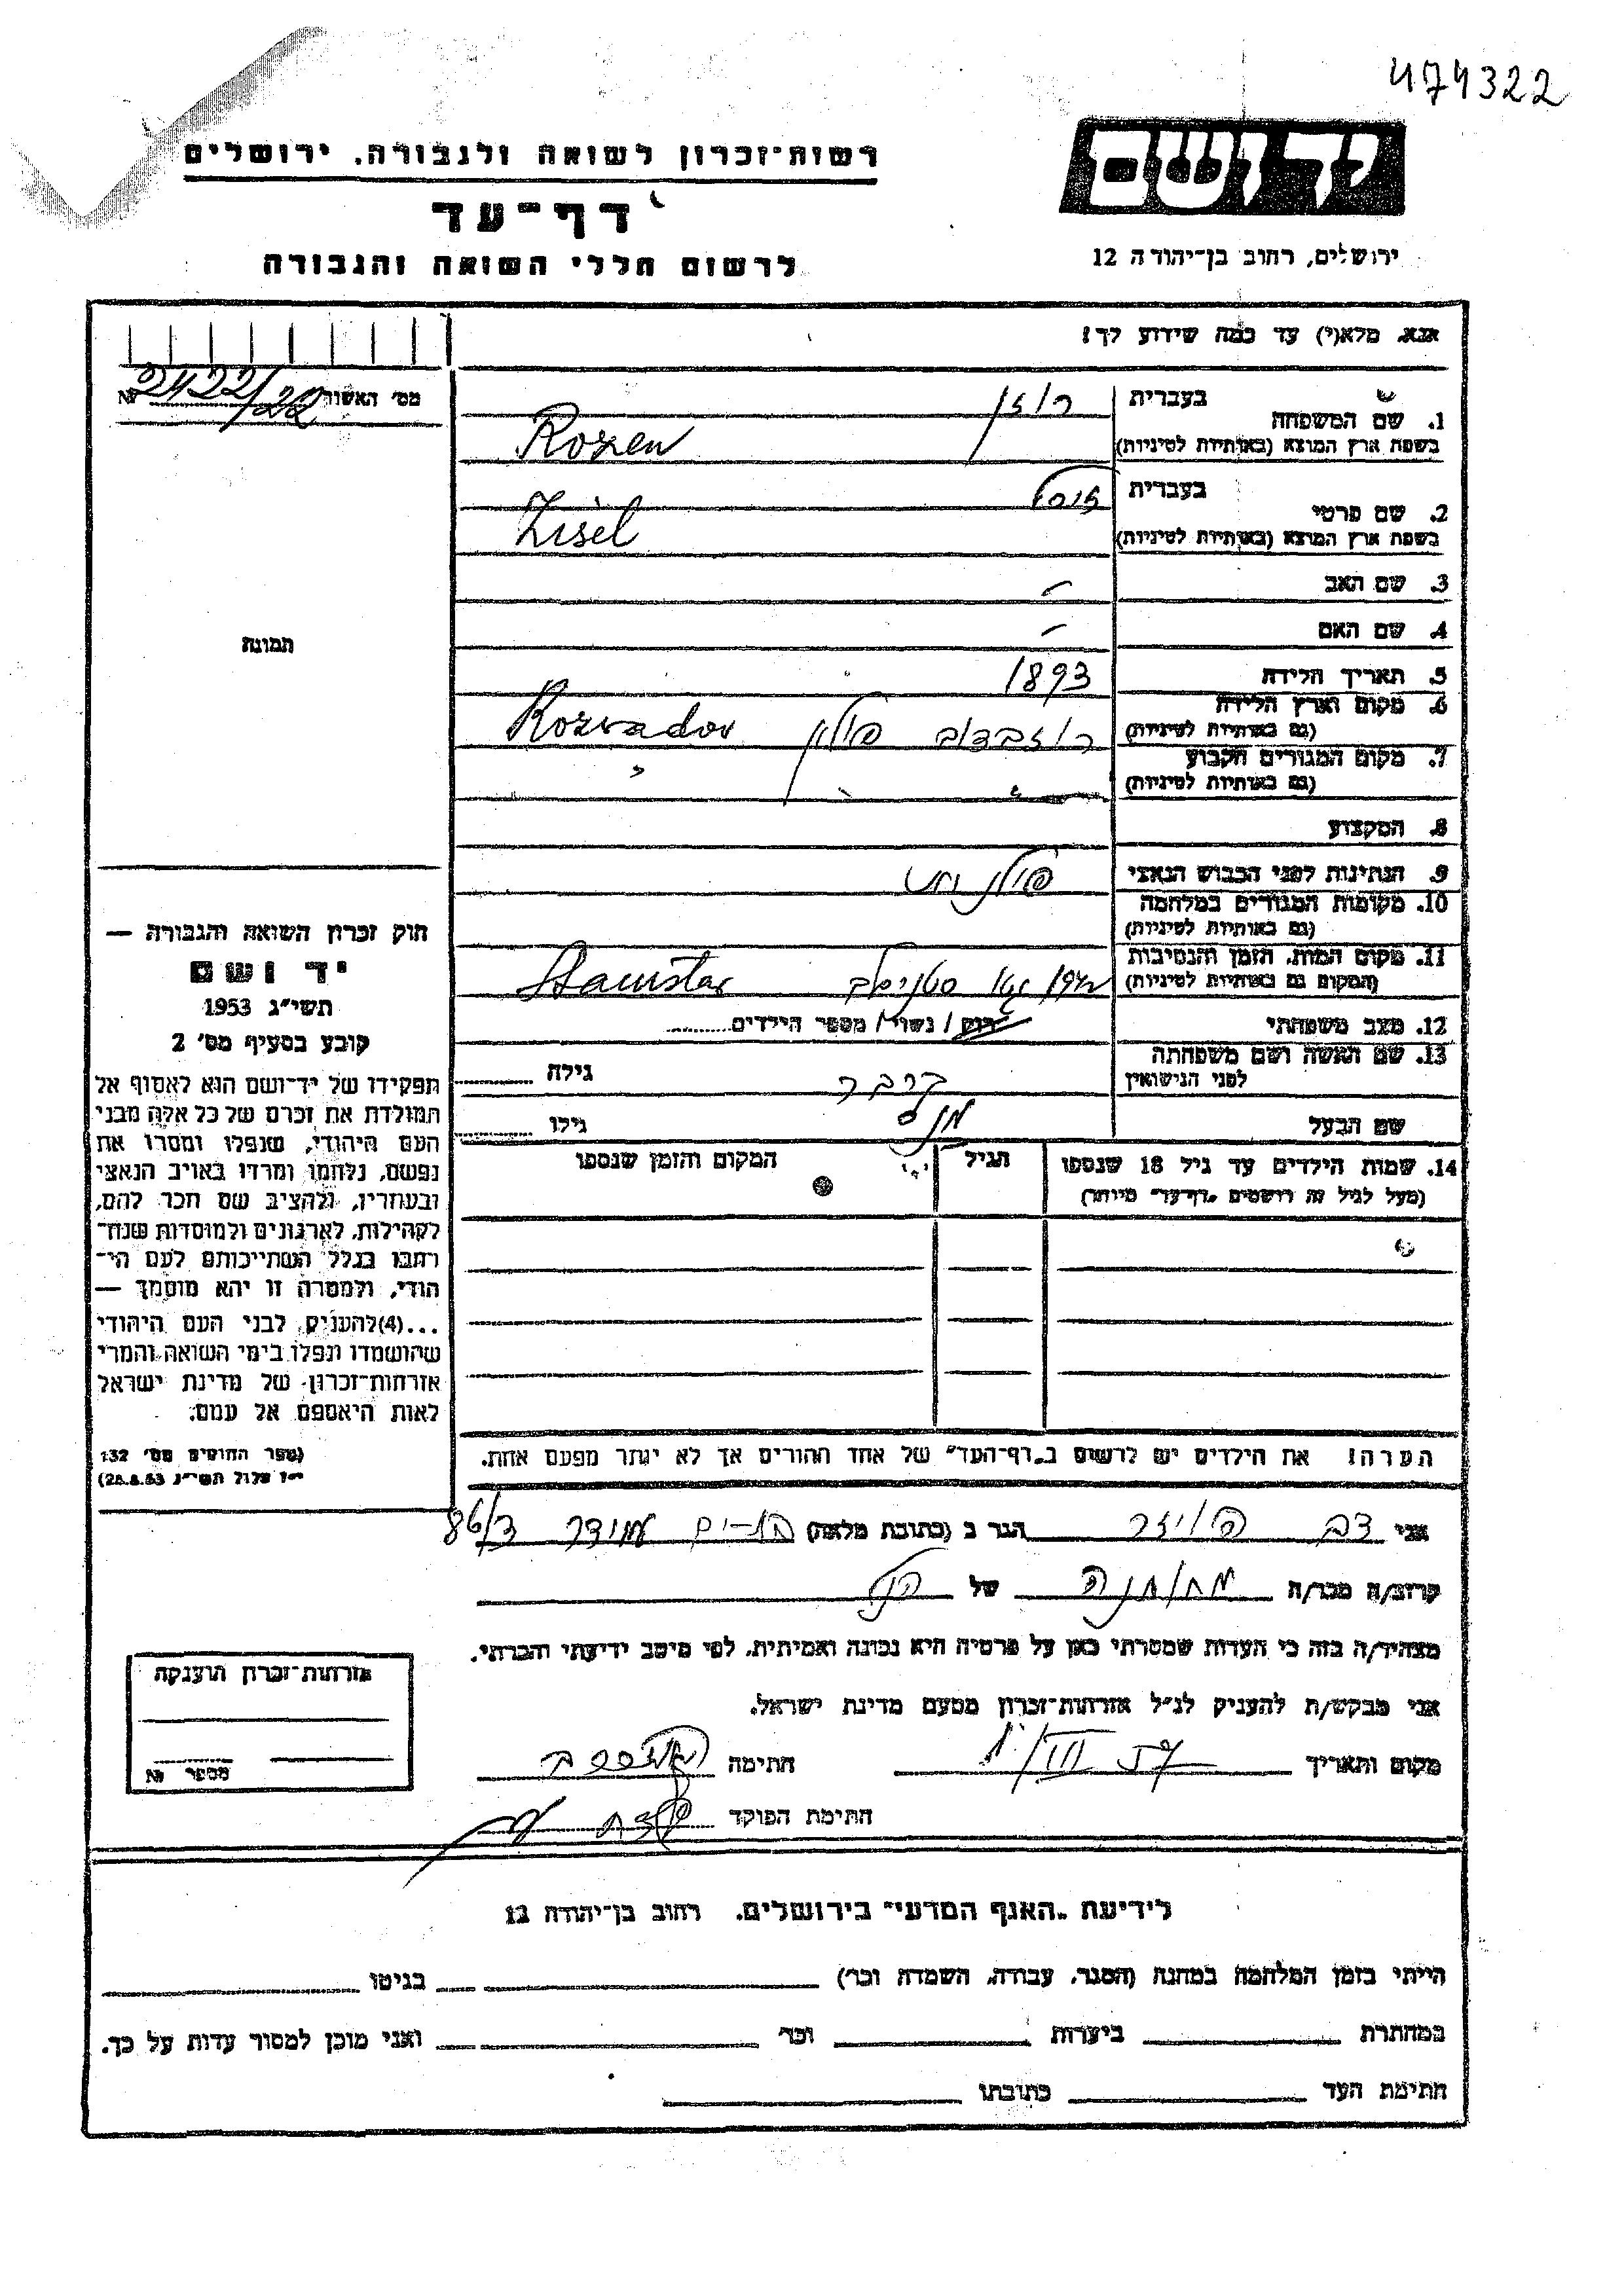 474322
יד ושם
רשות־זכרון לשואה ולגבורה, ירושלים
דף־עד
לרשום חללי השואה והגבורה
ירושלים, רחוב בן־יהודה 12
אנא, מלא(י) עד כמה שידוע לך!
מס' האשור № 2422/22
1. שם המשפחה בעברית רוזן
בשפת ארץ המוצא (באותיות לטיניות) Rozen
2. שם פרטי בעברית זיסל
בשפת ארץ המוצא (באותיות לטיניות) Zisel
3. שם האב –
4. שם האם –
תמונה
5. תאריך הלידה 1893
6. מקום וארץ הלידה
(גם באותיות לטיניות) רוזבדוב פולין Rozvadov
7. מקום המגורים הקבוע
(גם באותיות לטיניות)
8. המקצוע
9. הנתינות לפני הכבוש הנאצי פולנית
10. מקומות המגורים במלחמה
(גם באותיות לטיניות)
11. מקום המות, הזמן והנסיבות
(המקום גם באותיות לטיניות)
12. מצב משפחתי רוק / נשוי / מספר הילדים
13. שם האשה ושם משפחתה
לפני הנישואין גילה
שם הבעל גילו
14. שמות הילדים עד גיל 18 שנספו הגיל המקום והזמן שנספו
(מעל לגיל זה רושמים "דף־עד" מיוחד)
חוק זכרון השואה והגבורה —
יד ושם
תשי"ג 1953
קובע בסעיף מס' 2
תפקידו של יד־ושם הוא לאסוף אל
המולדת את זכרם של כל אלה מבני
העם היהודי, שנפלו ומסרו את
נפשם, נלחמו ומרדו באויב הנאצי
ובעוזריו, ולהציב שם וזכר להם,
לקהילות, לארגונים ולמוסדות שנח־
רבו בגלל השתייכותם לעם הי־
הודי, ולמטרה זו יהא מוסמך —
...(4)להעניק לבני העם היהודי
שהושמדו ונפלו בימי השואה והמרי
אזרחות־זכרון של מדינת ישראל
לאות היאספם אל עמם.
(ספר החוקים מס' 132
י"ז אלול תשי"ג 28.8.53)
הערה! את הילדים יש לרשום ב"דף־העד" של אחד ההורים אך לא יותר מפעם אחת.
אני דב הגר ב (כתובת מלאה) 86/3
קרוב/ה מכר/ה של
מצהיר/ה בזה כי העדות שמסרתי כאן על פרטיה היא נכונה ואמיתית, לפי מיטב ידיעתי והכרתי.
אני מבקש/ת להעניק לנ"ל אזרחות־זכרון מטעם מדינת ישראל.
מקום ותאריך חתימה
חתימת הפוקד
אזרחות־זכרון הוענקה
מספר №
לידיעת "האגף המדעי" בירושלים, רחוב בן־יהודה 12
הייתי בזמן המלחמה במחנה (הסגר, עבודה, השמדה וכו') בגיטו
במחתרת ביערות וכו' ואני מוכן למסור עדות על כך.
חתימת העד כתובתו